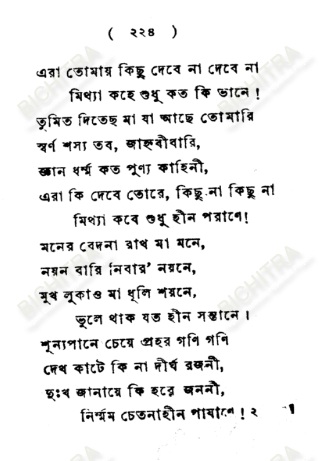 ( ২২৪ )
এরা তোমায় কিছু দেবে না দেবে না
মিথ্যা কহে শুধু কত কি ভানে !
তুমিত দিতেছ মা যা আছে তোমারি
স্বর্ণ শস্য তব, জাহ্নবীবারি,
জ্ঞান ধর্ম্ম কত পুণ্য কাহিনী,
এরা কি দেবে তোরে, কিছু না কিছু না
মিথ্যা কবে শুধু হীন পরাণে!
মনের বেদনা রাখ মা মনে,
নয়ন বারি নিবার' নয়নে,
মুখ লুকাও মা ধূলি শয়নে,
ভুলে থাক যত হীন সন্তানে ।
শূন্যপানে চেয়ে প্রহর গণি গণি
দেখ কাটে কি না দীর্ঘ রজনী,
দুঃখ জানায়ে কি হবে জননী,
নির্ম্মম চেতনাহীন পাষাণে ! ২
BICHITRA